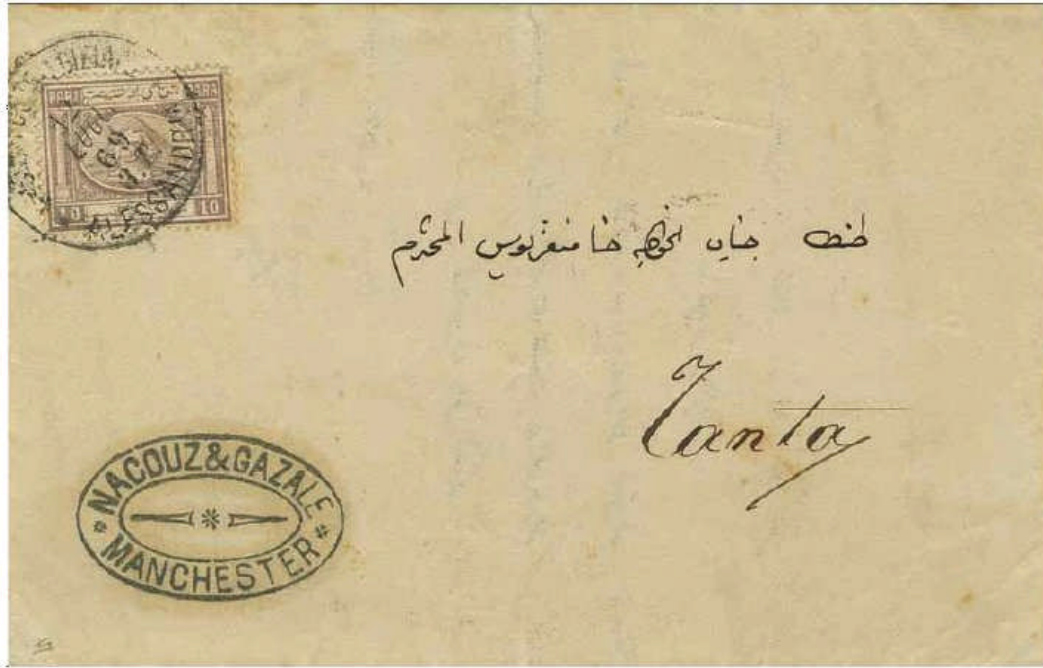 PARA PARA
10
ALESSANDRIA
69
طنطا جناب الخواجه حنا منقريوس المحترم
Tanta
NACOUZ & GAZALE
MANCHESTER